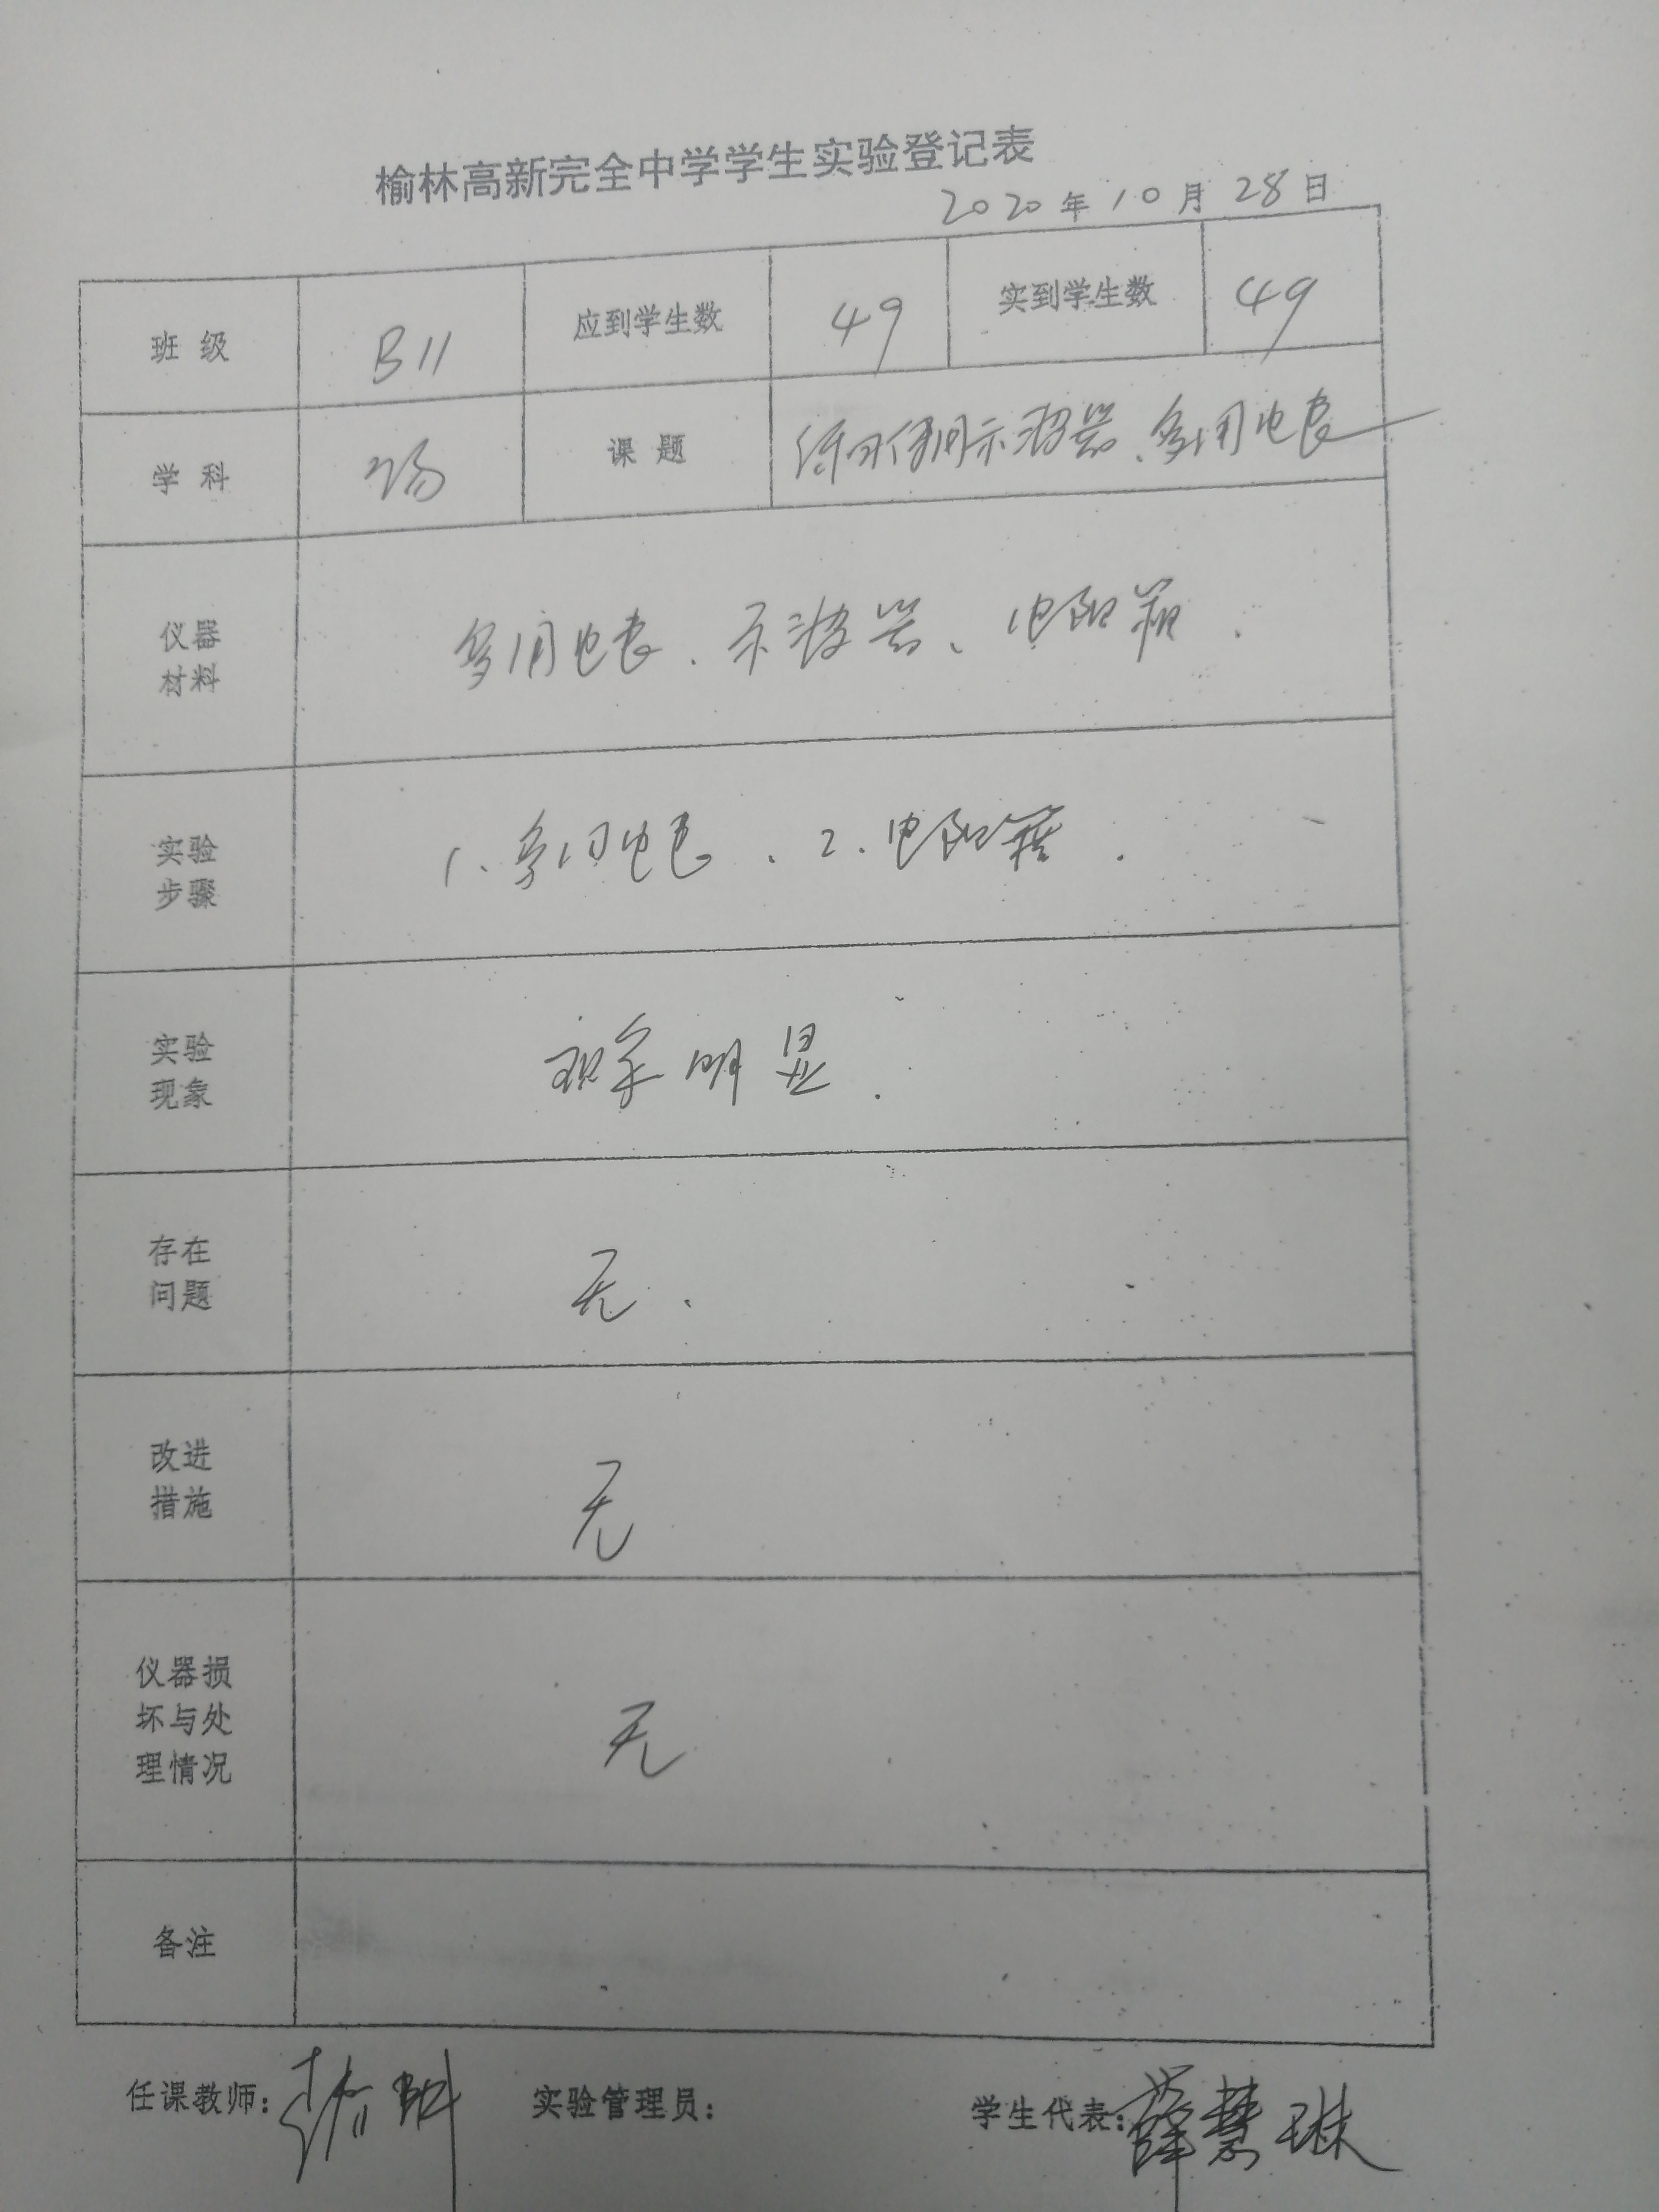 榆林高新完全中学学生实验登记表
2020年10月28日
班级 B11 应到学生数 49 实到学生数 49
学科 物 课题 练习使用示波器、多用电表
仪器
材料
多用电表、示波器、电阻箱.
实验
步骤
1、多用电表、2、电阻箱.
实验
现象
现象明显.
存在
问题
无.
改进
措施
无
仪器损
坏与处
理情况
无
备注
任课教师: 实验管理员: 学生代表:薛慧琳